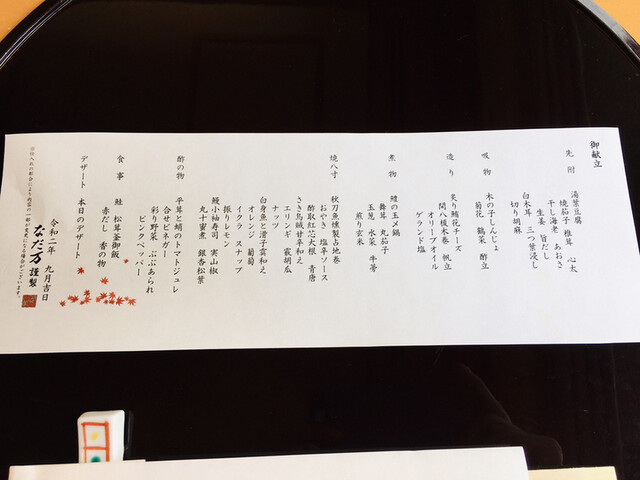 御献立
先附 湯葉豆腐
焼茄子 椎茸 心太
干し海老 あおさ
生姜 旨だし
白木耳 三つ葉浸し
切り胡麻
吸物 木の子しんじょ
菊花 鶴菜 酢立
造り 炙り鱧花チーズ
間八榎木巻 帆立
オリーブオイル
ゲランド塩
煮物 鱧の玉〆鍋
舞茸 丸茄子
玉葱 水菜 牛蒡
煎り玄米
焼八寸 秋刀魚燻製占地巻
おやき 塩辛ソース
酢取紅芯大根 青唐
さき烏賊甘辛和え
エリンギ 萩胡瓜
ナッツ
白身魚と滑子霙和え
オレンジ 葡萄
イクスナップ
振りレモン
鰻小袖寿司 実山椒
丸十蜜煮 銀杏松葉
酢の物 平茸と蛸のトマトジュレ
合せビネガー
彩り野菜 ぶぶあられ
ピンクペッパー
食事 鮭 松茸釜御飯
赤だし 香の物
デザート 本日のデザート
令和二年 九月吉日
なだ万 謹製
※仕入れの都合により内容の一部が変更になる場合がございます。